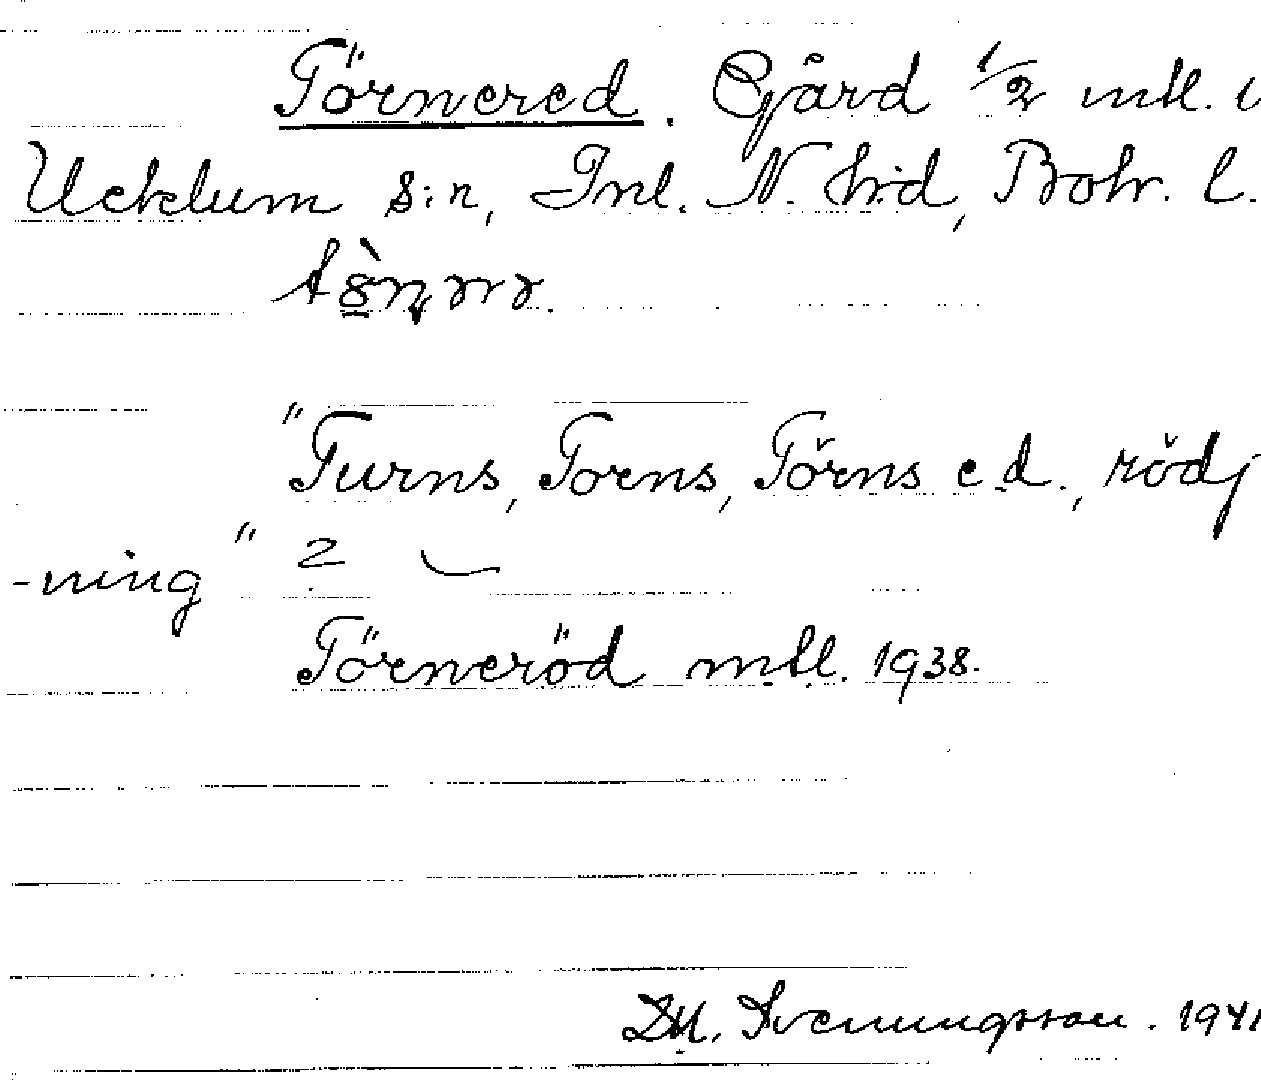 Törnered. Gård 1/2 mtl. i
Ucklum s:n, Inl. N. h:d, Boh. l.
"Turns, Torns, Törns e.d., rödj
-ning" ?
Törneröd mtl. 1938.
D.M. Svenungsson. 1941